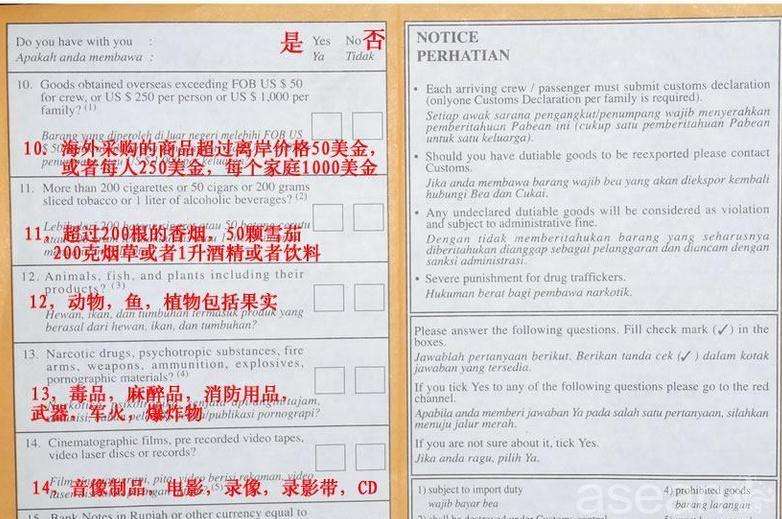 Do you have with you :
是 Yes No 否
Apakah anda membawa :
Ya Tidak
10. Goods obtained overseas exceeding FOB US $ 50
for crew, or US $ 250 per person or US $ 1,000 per
family? (1)
Barang yang diperoleh di luar negeri melebihi FOB US
10. 海外采购的商品超过离岸价格50美金，
或者每人250美金，每个家庭1000美金
11. More than 200 cigarettes or 50 cigars or 200 grams
sliced tobacco or 1 liter of alcoholic beverages? (2)
11，超过200根的香烟，50颗雪茄
200克烟草或者1升酒精或者饮料
12. Animals, fish, and plants including their
products? (3)
12，动物，鱼，植物包括果实
Hewan, ikan, dan tumbuhan termasuk produk yang
berasal dari hewan, ikan, dan tumbuhan?
13. Narcotic drugs, psychotropic substances, fire
arms, weapons, ammunition, explosives,
pornographic materials? (4)
13，毒品，麻醉品，消防用品，
武器，军火，爆炸物
publikasi pornograpi?
14. Cinematographic films, pre recorded video tapes,
video laser discs or records?
14，音像制品，电影，录像，录影带，CD
15. Bank Notes in Rupiah or other currency equal to
NOTICE
PERHATIAN
• Each arriving crew / passenger must submit customs declaration
(onlyone Customs Declaration per family is required).
Setiap awak sarana pengangkut/penumpang wajib menyerahkan
pemberitahuan Pabean ini (cukup satu pemberitahuan Pabean
untuk satu keluarga).
• Should you have dutiable goods to be reexported please contact
Customs.
Jika anda membawa barang wajib bea yang akan diekspor kembali
hubungi Bea dan Cukai.
• Any undeclared dutiable goods will be considered as violation
and subject to administrative fine.
Dengan tidak memberitahukan barang yang seharusnya
diberitahukan dianggap sebagai pelanggaran dan diancam dengan
sanksi administrasi.
• Severe punishment for drug traffickers.
Hukuman berat bagi pembawa narkotik.
Please answer the following questions. Fill check mark (✓) in the
boxes.
Jawablah pertanyaan berikut. Berikan tanda cek (✓) dalam kotak
jawaban yang tersedia.
If you tick Yes to any of the following questions please go to the red
channel.
Apabila anda memberi jawaban Ya pada salah satu pertanyaan, silahkan
menuju jalur merah.
If you are not sure about it, tick Yes.
Jika anda ragu, pilih Ya.
1) subject to import duty
wajib bayar bea
4) prohibited goods
barang larangan